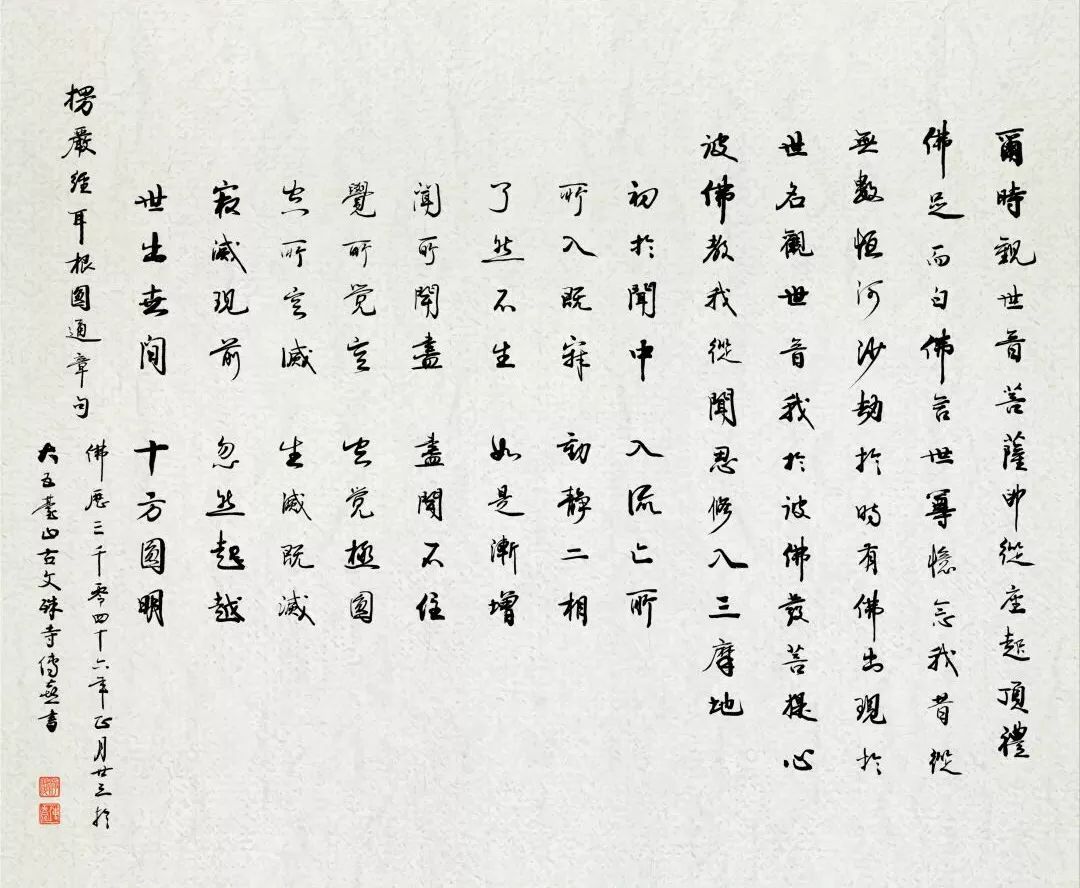 爾時觀世音菩薩即從座起頂禮
佛足而白佛言世尊憶念我昔從
無數恒河沙劫於時有佛出現於
世名觀世音我於彼佛發菩提心
彼佛教我從聞思修入三摩地
初於聞中 入流亡所
所入既寂 動靜二相
了然不生 如是漸增
聞所聞盡 盡聞不住
覺所覺空 空覺極圓
空所空滅 生滅既滅
寂滅現前 忽然超越
世出世間 十方圓明
楞嚴經耳根圓通章句
佛歷三千零四十六年正月廿三於
大五臺山古文殊寺傳喜書